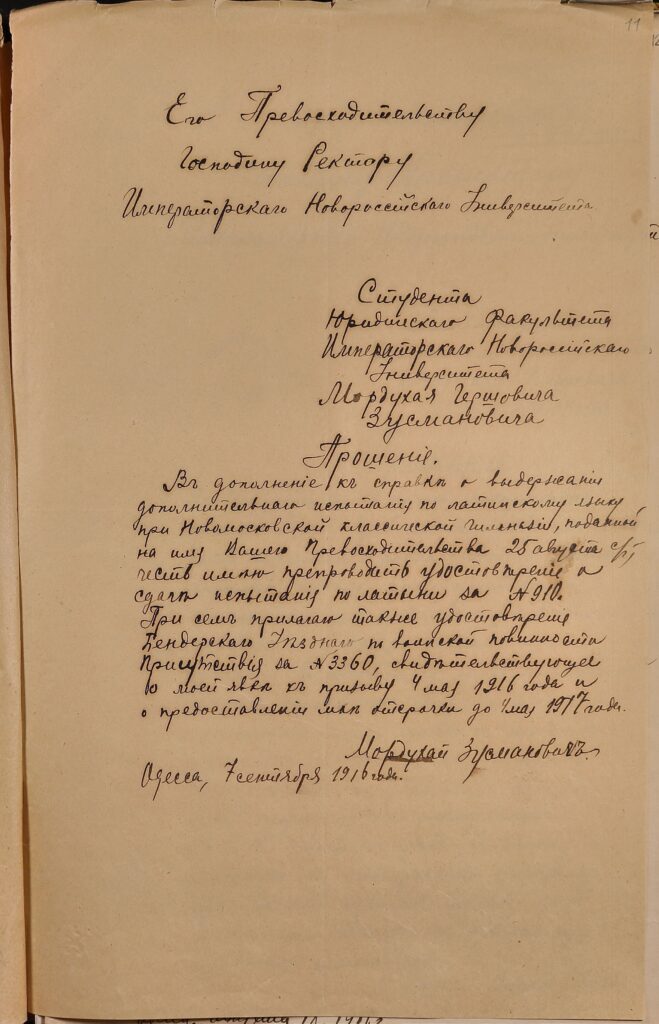 11
Его Превосходительству
Господину Ректору
Императорскаго Новороссійскаго Университета
Студента
Юридическаго Факультета
Императорскаго Новороссійскаго
Университета
Мордухая Гершовича
Зусмановича
Прошеніе.
Въ дополненіе къ справкѣ о выдержаніи
дополнительнаго испытанія по латинскому языку
при Новомосковской классической гимназіи, поданной
на имя Вашего Превосходительства 25 августа с/г,
честь имѣю препроводить удостовѣреніе о
сдачѣ испытанія по латыни за №910.
При семъ прилагаю также удостовѣреніе
Бендерскаго Уѣзднаго по воинской повинности
Присутствія за №3360, свидѣтельствующее
о моей явкѣ къ призыву 4 мая 1916 года и
о предоставленіи мнѣ отсрочки до 4 мая 1917 года.
Мордухай Зусмановичъ.
Одесса, 7 сентября 1916 года.